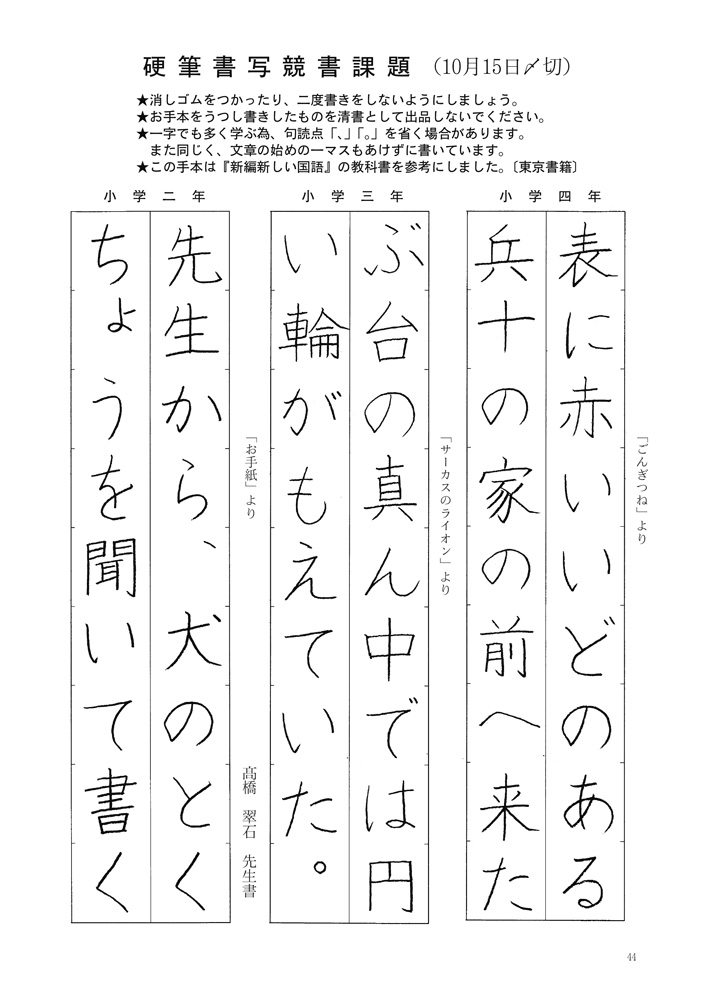 硬筆書写競書課題 (10月15日〆切)
★消しゴムをつかったり、二度書きをしないようにしましょう。
★お手本をうつし書きしたものを清書として出品しないでください。
★一字でも多く学ぶ為、句読点「、」「。」を省く場合があります。
また同じく、文章の始めの一マスもあけずに書いています。
★この手本は『新編新しい国語』の教科書を参考にしました。〔東京書籍〕
小学四年
「ごんぎつね」より
表に赤いいどのある
兵十の家の前へ来た
小学三年
「サーカスのライオン」より
ぶ台の真ん中では円
い輪がもえていた。
小学二年
「お手紙」より
髙橋 翠石 先生書
先生から、犬のとく
ちょうを聞いて書く
44